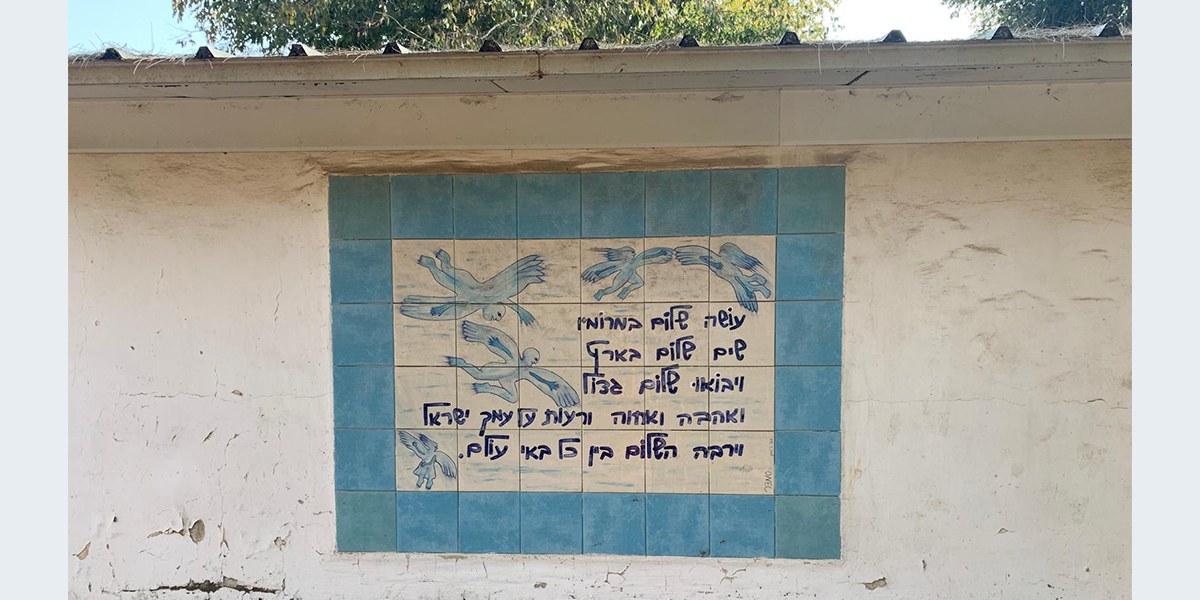 עושה שלום במרומיו
שים שלום בארץ
ויבואו שלום גדול
ואהבה ואחוה ורעות על עמך ישראל
וירבה השלום בין כל באי עולם.